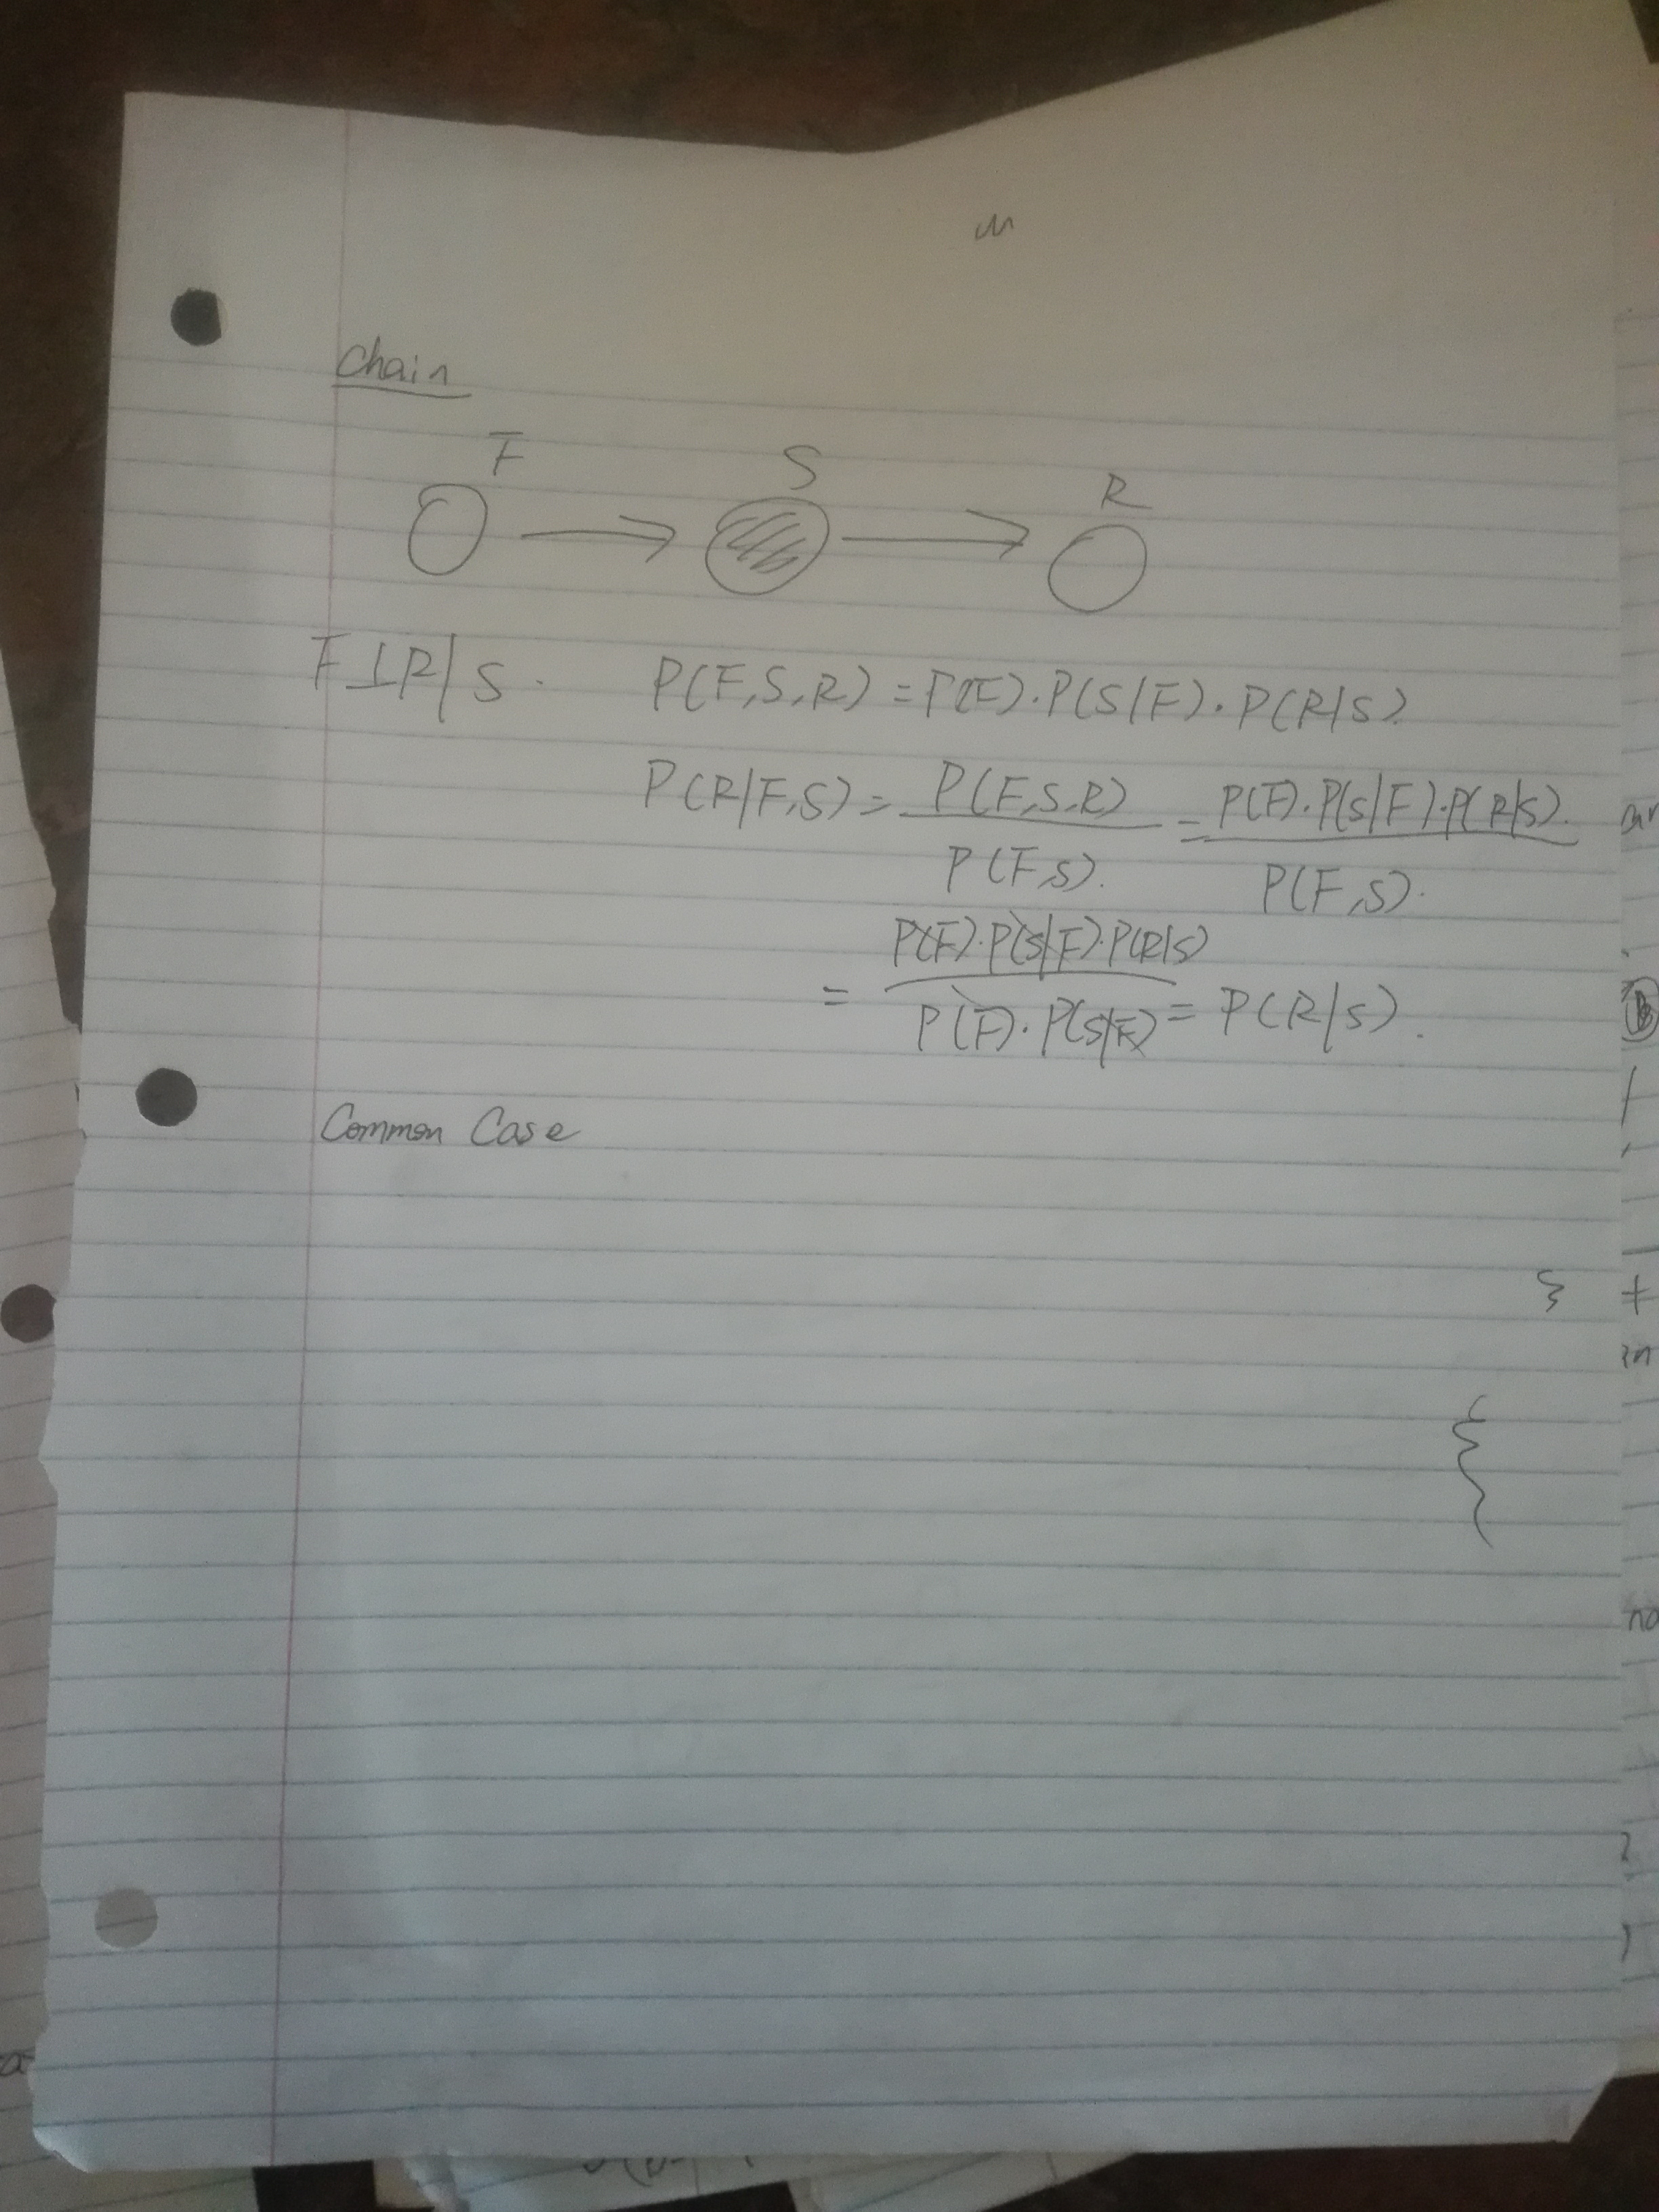 Chain
F S R
F⊥R|S. P(F,S,R) = P(F).P(S|F).P(R|S)
P(R|F,S) = P(F,S,R) / P(F,S). = P(F).P(S|F).P(R|S). / P(F,S).
= P(F).P(S|F).P(R|S) / P(F).P(S|F) = P(R|S).
Common Case